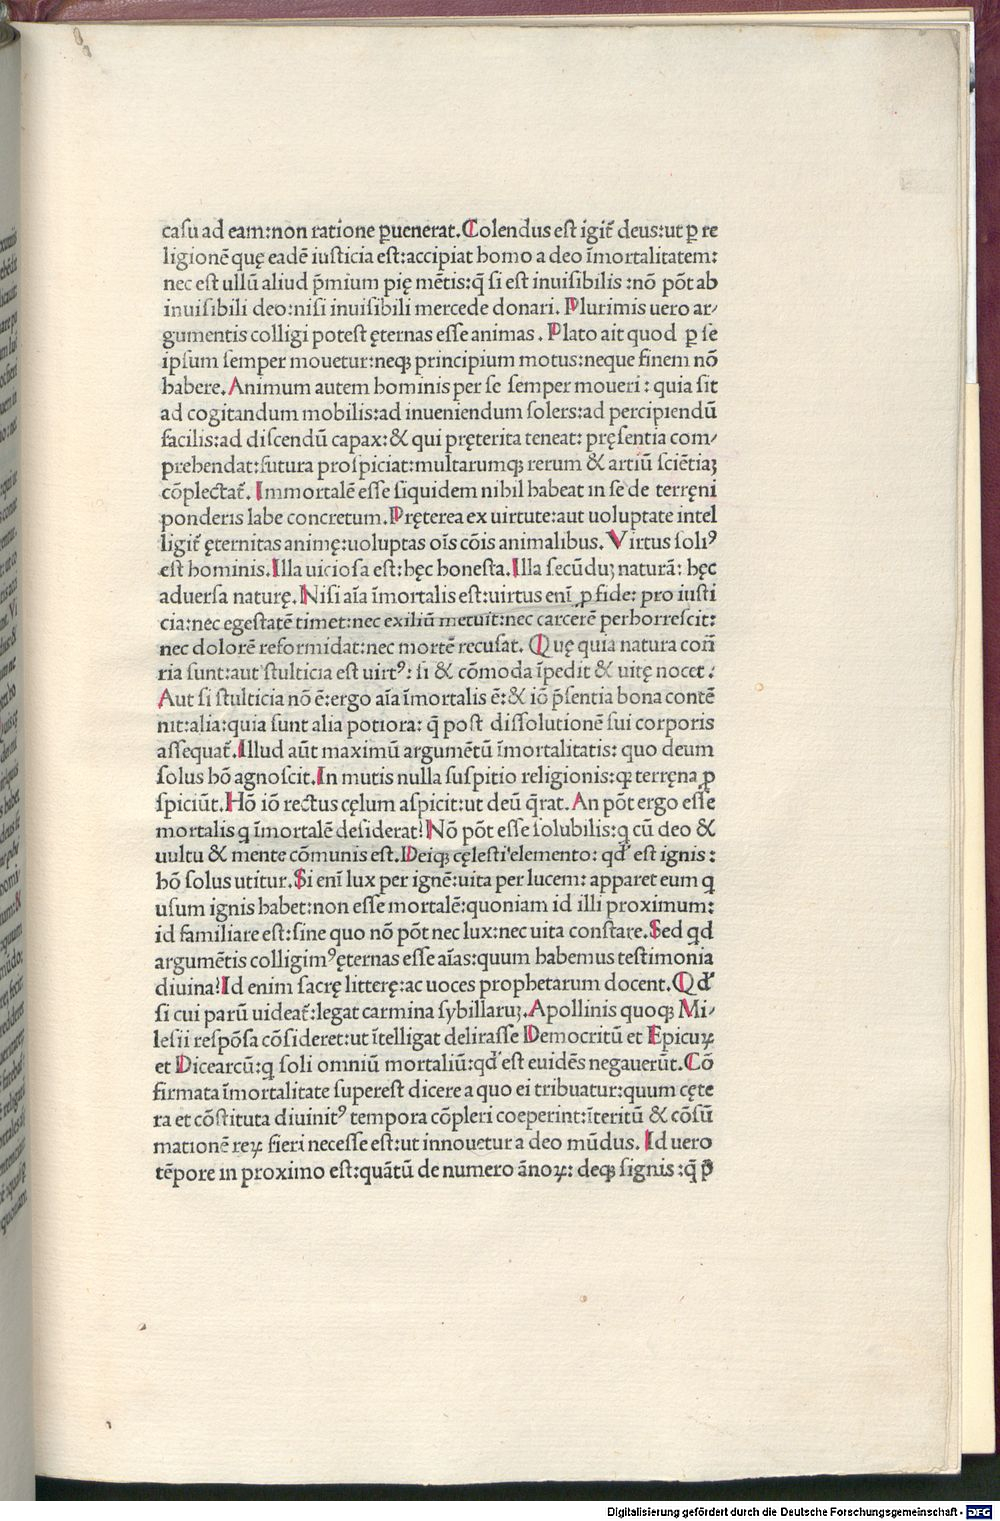 casu ad eam:non ratione ꝑuenerat. Colendus est igit̃ deus:ut ꝑ re
ligionẽ quę eadẽ iusticia est:accipiat homo a deo ĩmortalitatem:
nec est ullũ aliud p̃mium pię mẽtis:q̃ si est inuisibilis :nõ põt ab
inuisibili deo:nisi inuisibili mercede donari. Plurimis uero ar⸗
gumentis colligi potest ęternas esse animas . Plato ait quod ꝑ se
ipsum semper mouetur:neqꝫ principium motus:neque finem nõ
habere. Animum autem hominis per se semper moueri : quia sit
ad cogitandum mobilis:ad inueniendum solers:ad percipiendũ
facilis:ad discendũ capax:& qui pręterita teneat: pręsentia com⸗
prehendat:futura prospiciat:multarumqꝫ rerum & artiũ sciẽtiaꝫ
cõplectat̃. Immortalẽ esse siquidem nihil habeat in se de terręni
ponderis labe concretum. Pręterea ex uirtute:aut uoluptate intel
ligit̃ ęternitas animę:uoluptas oĩs cõis animalibus. Virtus soliꝰ
est hominis. Illa uiciosa est:hęc honesta. Illa secũduꝫ naturã: hęc
aduersa naturę. Nisi aĩa ĩmortalis est:uirtus enĩ ꝓ fide: pro iusti
cia:nec egestatẽ timet:nec exiliũ metuit:nec carcerẽ perhorrescit:
nec dolorẽ reformidat:nec mortẽ recusat. Quę quia natura cor̃i
ria sunt:aut stulticia est uirtꝰ: si & cõmoda ĩpedit & uitę nocet :
Aut si stulticia nõ ẽ:ergo aĩa ĩmortalis ẽ:& iõ p̃sentia bona contẽ
nit:alia:quia sunt alia potiora: q̃ post dissolutionẽ sui corporis
assequat̃. Illud aũt maximũ argumẽtũ ĩmortalitatis: quo deum
solus hõ agnoscit. In mutis nulla suspitio religionis:qꝫ terręna ꝓ
spiciũt. Hõ iõ rectus cęlum aspicit:ut deũ q̃rat. An põt ergo esse
mortalis q ĩmortalẽ desiderat? Nõ põt esse solubilis:q cũ deo &
uultu & mente cõmunis est. Deiqꝫ cęlesti elemento: qđ est ignis :
hõ solus utitur. Si enĩ lux per ignẽ:uita per lucem: apparet eum q
usum ignis habet:non esse mortalẽ:quoniam id illi proximum:
id familiare est:sine quo nõ põt nec lux:nec uita constare. Sed qd
argumẽtis colligimꝰ ęternas esse aĩas:quum habemus testimonia
diuina? Id enim sacrę litterę:ac uoces prophetarum docent. Qđ
si cui parũ uideat̃:legat carmina sybillaruꝫ. Apollinis quoqꝫ Mi⸗
lesii respõsa cõsideret:ut ĩtelligat delirasse Democritũ et Epicuꝝ
et Dicearcũ:q soli omniũ mortaliũ:qđ est euidẽs negauerũt. Cõ
firmata ĩmortalitate superest dicere a quo ei tribuatur:quum cęte
ra et cõstituta diuinitꝰ tempora cõpleri coeperint:ĩteritũ & cõsũ
mationẽ reꝝ fieri necesse est:ut innouetur a deo mũdus. Id uero
tẽpore in proximo est:quãtũ de numero ãnoꝝ: deqꝫ signis :q̃ p̃
Digitalisierung gefördert durch die Deutsche Forschungsgemeinschaft - DFG